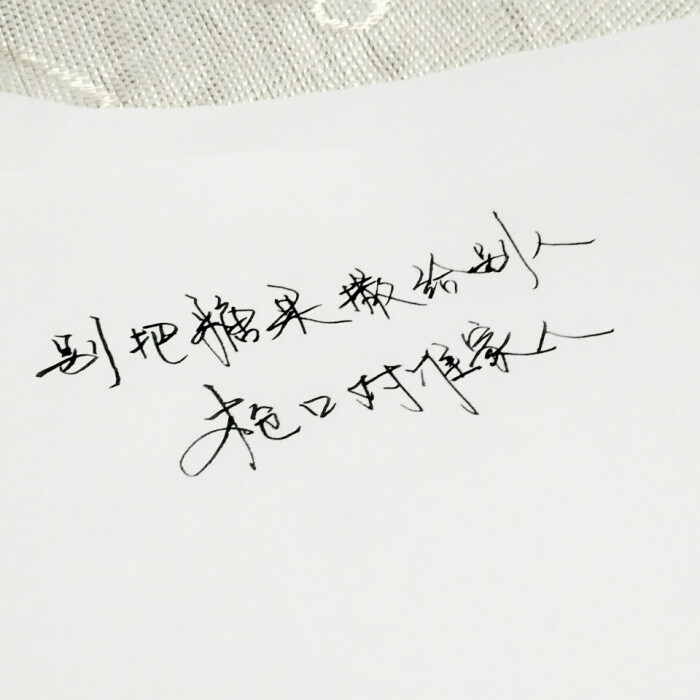 别把糖果撒给别人
枪口对准家人